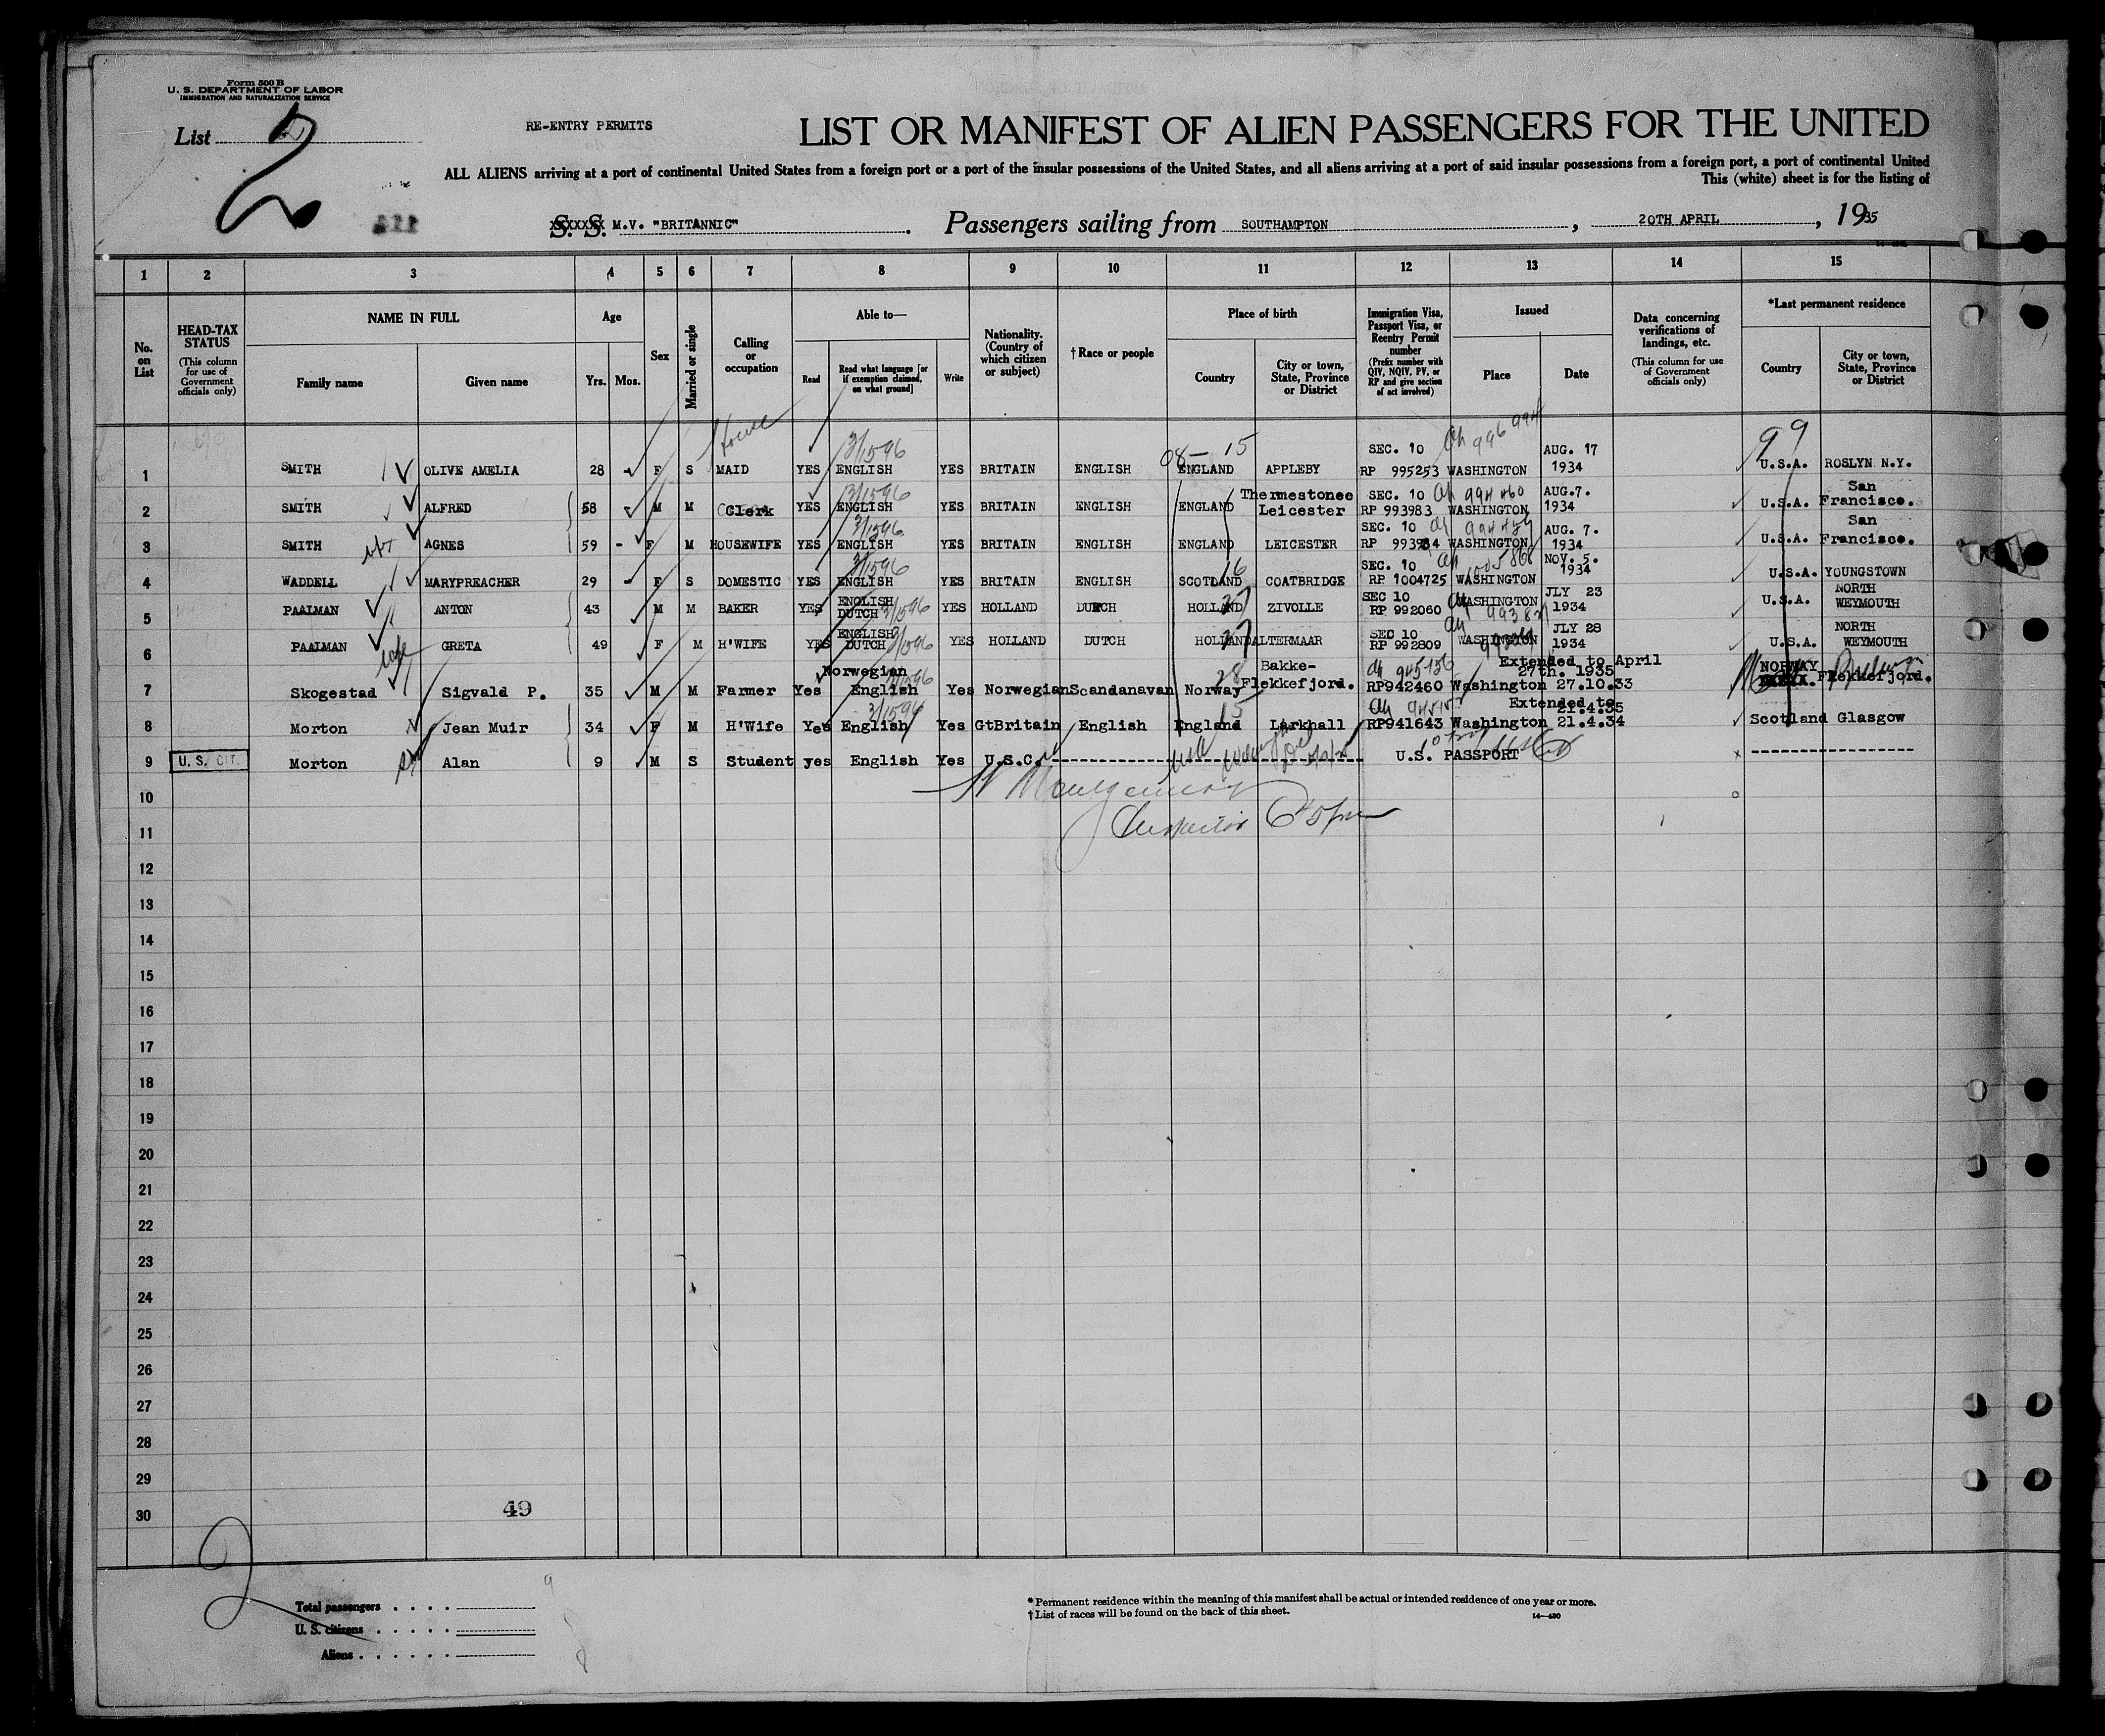 Form 500 B
U. S. DEPARTMENT OF LABOR
IMMIGRATION AND NATURALIZATION SERVICE
List 2
RE-ENTRY PERMITS
LIST OR MANIFEST OF ALIEN PASSENGERS FOR THE UNITED
ALL ALIENS arriving at a port of continental United States from a foreign port or a port of the insular possessions of the United States, and all aliens arriving at a port of said insular possessions from a foreign port, a port of continental United
This (white) sheet is for the listing of
S. S. M.V. "BRITANNIC". Passengers sailing from SOUTHAMPTON, 20TH APRIL, 1935
1 2 3 4 5 6 7 8 9 10 11 12 13 14 15
No. on List
HEAD-TAX STATUS
(This column for use of Government officials only)
NAME IN FULL
Family name Given name
Age
Yrs. Mos.
Sex
Married or single
Calling or occupation
Able to—
Read
Read what language [or if exemption claimed, on what ground]
Write
Nationality. (Country of which citizen or subject)
†Race or people
Place of birth
Country
City or town, State, Province or District
Immigration Visa, Passport Visa, or Reentry Permit number
(Prefix number with QIV, NQIV, PV, or RP and give section of act involved)
Issued
Place Date
Data concerning verifications of landings, etc.
(This column for use of Government officials only)
*Last permanent residence
Country
City or town, State, Province or District
House 3/1596 08- 15 99
1 SMITH OLIVE AMELIA 28 F S MAID YES ENGLISH YES BRITAIN ENGLISH ENGLAND APPLEBY SEC. 10 RP 995253 WASHINGTON AUG. 17 1934 U.S.A. ROSLYN N.Y.
3/1596
2 SMITH ALFRED 58 M M Clerk YES ENGLISH YES BRITAIN ENGLISH ENGLAND Thermestonee Leicester SEC. 10 994460 RP 993983 WASHINGTON AUG.7. 1934 U.S.A. San Francisco.
3/1596
3 SMITH AGNES 59 - F M HOUSEWIFE YES ENGLISH YES BRITAIN ENGLISH ENGLAND LEICESTER SEC. 10 RP 993984 WASHINGTON AUG. 7. 1934 U.S.A. San Francisco.
3/1596 16
4 WADDELL MARYPREACHER 29 F S DOMESTIC YES ENGLISH YES BRITAIN ENGLISH SCOTLAND COATBRIDGE SEC. 10 RP 1004725 WASHINGTON NOV. 5. 1934 U.S.A. YOUNGSTOWN
5 PAALMAN ANTON 43 M M BAKER YES ENGLISH DUTCH 3/1596 YES HOLLAND DUTCH HOLLAND 27 ZIVOLLE SEC 10 RP 992060 WASHINGTON JLY 23 1934 U.S.A. NORTH WEYMOUTH
6 PAALMAN wife GRETA 49 F M H'WIFE YES ENGLISH DUTCH 3/1596 YES HOLLAND DUTCH HOLLAND 27 ALTERMAAR SEC 10 RP 992809 WASHINGTON JLY 28 1934 U.S.A. NORTH WEYMOUTH
7 Skogestad Sigvald P. 35 M M Farmer Yes Norwegian English 3/1596 Yes Norwegian Scandanavan Norway 28 Bakke-Flekkefjord. 945156 RP942460 Washington Extended to April 27th. 1935 27.10.33 NORWAY Flekkefjord.
3/1596 15
8 Morton Jean Muir 34 F M H'Wife Yes English Yes GtBritain English England Larkhall RP941643 Washington Extended to 21.4.35 21.4.34 Scotland Glasgow
9 U. S. CIT. Morton Alan 9 M S Student yes English Yes U.S.C. U.S. PASSPORT
10
Montgomery
11
Inspector
12
13
14
15
16
17
18
19
20
21
22
23
24
25
26
27
28
29
30
49
2
Total passengers 9
U. S. citizens
Aliens 8
*Permanent residence within the meaning of this manifest shall be actual or intended residence of one year or more.
†List of races will be found on the back of this sheet.
14—430